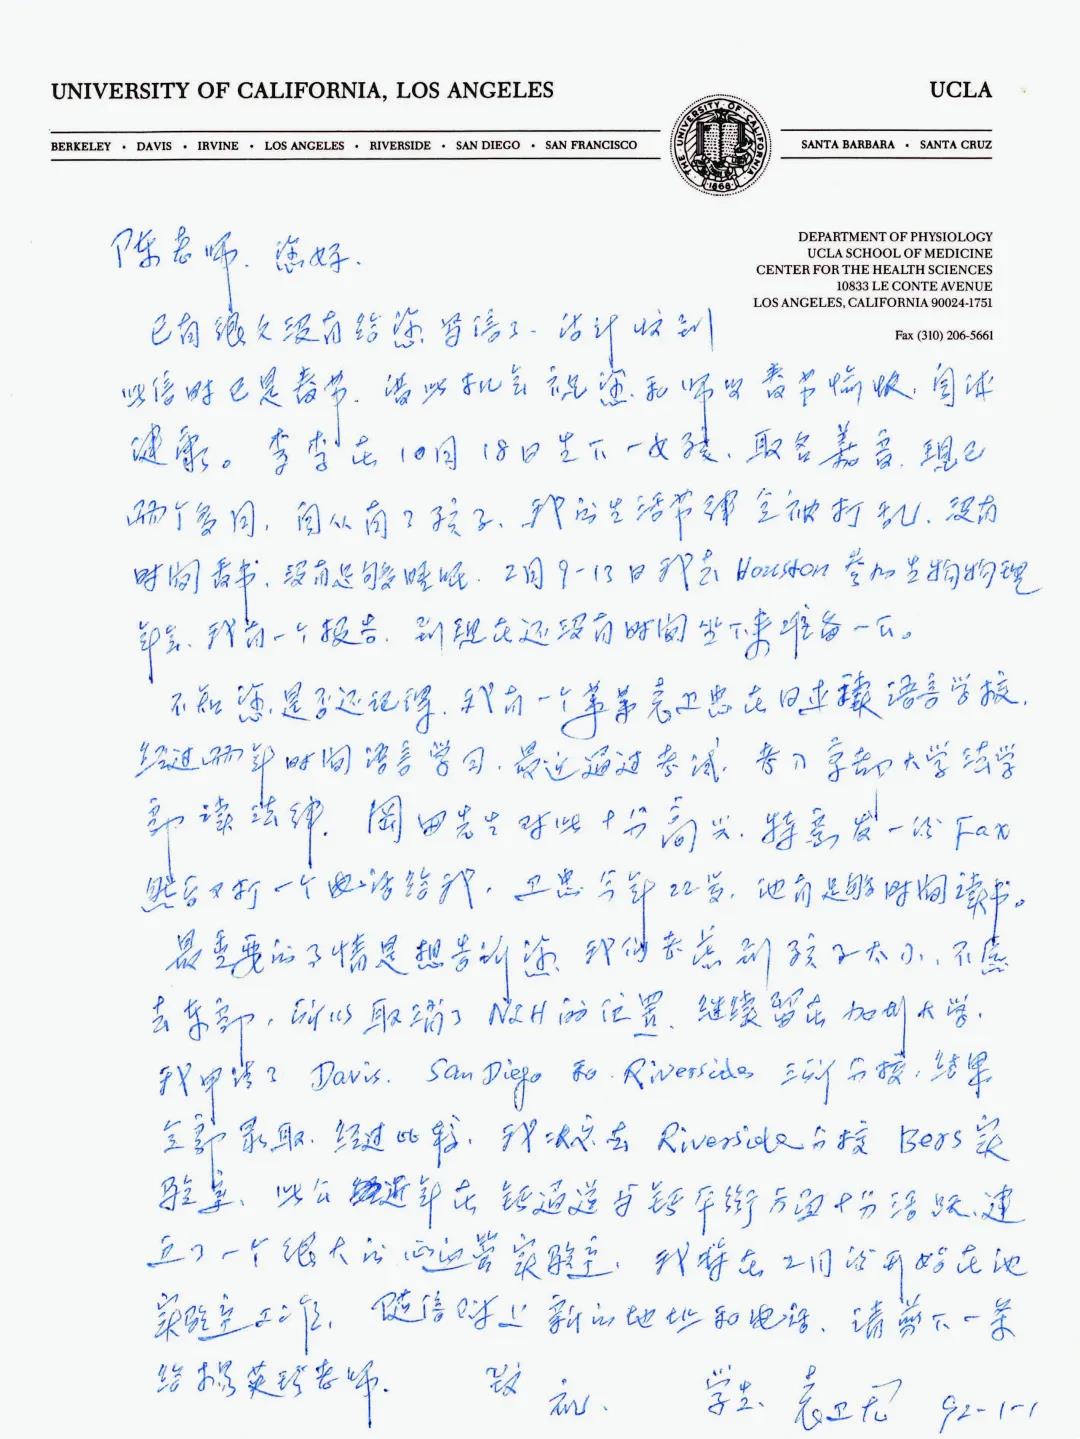 UNIVERSITY OF CALIFORNIA, LOS ANGELES
UCLA
BERKELEY • DAVIS • IRVINE • LOS ANGELES • RIVERSIDE • SAN DIEGO • SAN FRANCISCO
SANTA BARBARA • SANTA CRUZ
THE UNIVERSITY OF CALIFORNIA 1868
DEPARTMENT OF PHYSIOLOGY
UCLA SCHOOL OF MEDICINE
CENTER FOR THE HEALTH SCIENCES
10833 LE CONTE AVENUE
LOS ANGELES, CALIFORNIA 90024-1751
Fax (310) 206-5661
陈老师、您好.
已有很久没有给您写信了、估计收到
此信时已是春节、借此机会祝您和师母春节愉快,身体
健康。李李在10月18日生下一女孩、取名嘉音、现已
两个多月,自从有了孩子、我的生活节律全被打乱、没有
时间看书、没有足够睡眠. 2月9-13日我去Houston参加生物物理
年会、我有一个报告、到现在还没有时间坐下来准备一下。
不知您是否还记得、我有一个弟弟袁卫忠在日本读语言学校、
经过两年时间语言学习、最近通过考试、考入京都大学法学
部读法律. 岡田先生对此十分高兴、特意发一份Fax
然后又打一个电话给我、卫忠今年22岁、他有足够时间读书。
最重要的事情是想告诉您、我们考虑到孩子太小、不愿
去东部,所以取消了NIH的位置、继续留在加州大学、
我申请了Davis. San Diego 和 Riverside三所分校,结果
全部录取、经过比较、我决定去Riverside分校Bers实
验室、此公近年在钙通道与钙平衡方面十分活跃、建
立了一个很大的心血管实验室、我将在2月份开始在他
实验室工作、随信附上新的地址和电话、请剪下一条
给杨英珍老师. 致
礼. 学生、袁卫尤 92-1-1